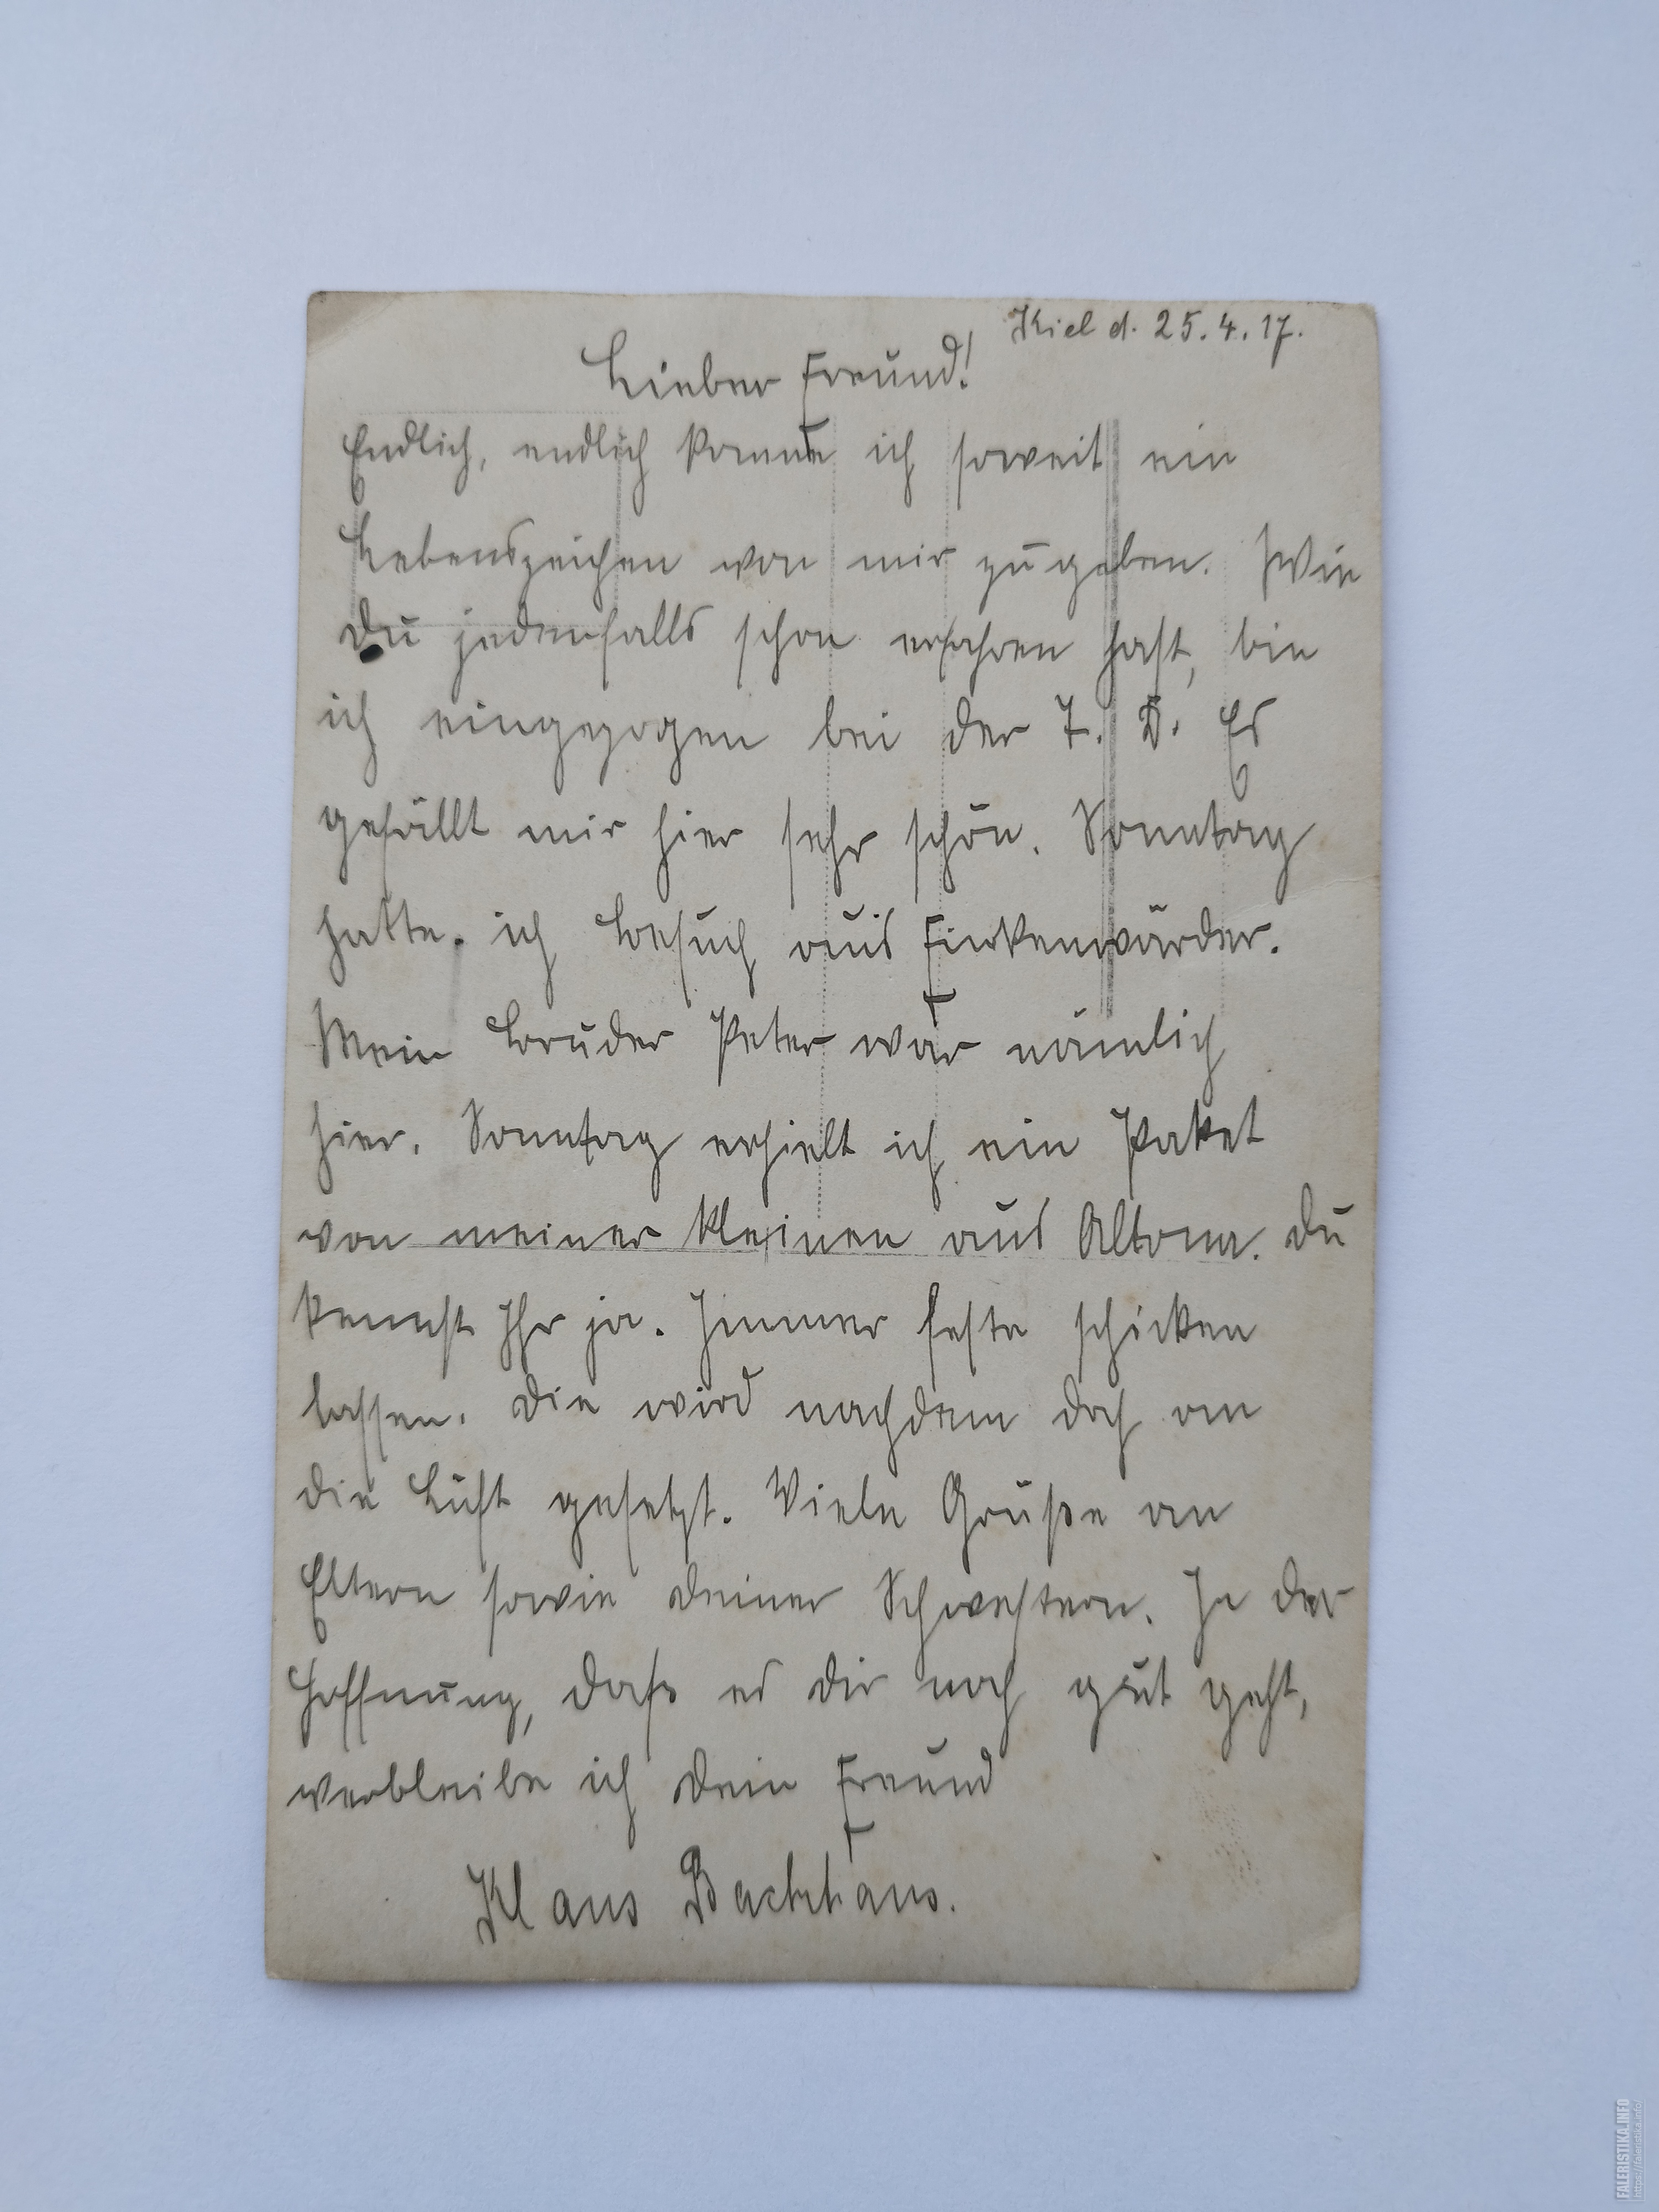 Kiel d. 25.4.17.
Lieber Freund!
Endlich, endlich komme ich soweit ein
Lebenszeichen von mir zu geben. Wie
Du jedenfalls schon erfahren hast, bin
ich eingezogen bei der T. D. Es
gefällt mir hier sehr schön. Sonntag
hatte ich Besuch aus Finkenwärder.
Mein Bruder Peter war nämlich
hier. Sonntag erhielt ich ein Paket
von meiner kleinen aus Altona. Du
kennst Ihr ja. Immer feste schicken
lassen. Die wird nachdem doch an
die Luft gesetzt. Viele Grüße an
Eltern sowie deiner Schwestern. In der
Hoffnung, daß es dir noch gut geht,
verbleibe ich dein Freund
Klaus Backhaus.
FALERISTIKA.INFO
https://faleristika.info/